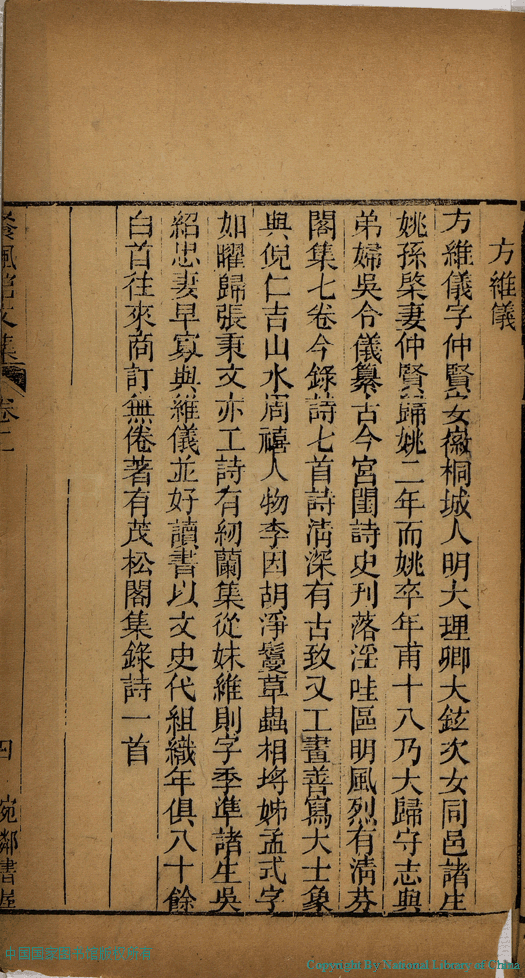 方維儀
方維儀字仲賢安徽桐城人明大理卿大鉉次女同邑諸生
姚孫棨妻仲賢歸姚二年而姚卒年甫十八乃大歸守志與
弟婦吳令儀纂古今宮閨詩史刋落淫哇區明風烈有淸芬
閣集七卷今錄詩七首詩淸深有古致又工畫善寫大士象
與倪仁吉山水周禧人物李因胡淨鬘草蟲相埒姊孟式字
如曜歸張秉文亦工詩有紉蘭集從妹維則字季準諸生吳
紹忠妻早寡與維儀並好讀書以文史代組織年俱八十餘
白首往來商訂無倦著有茂松閣集錄詩一首
風 文集 卷二
四 婉鄰書屋
中国国家
Copyright By National Library of China